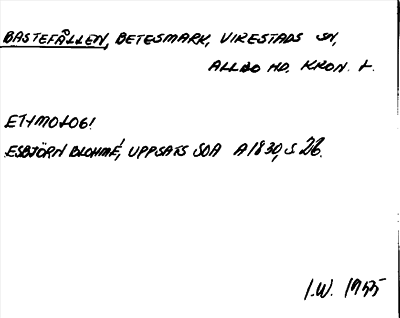 BASTEFÅLLEN, BETESMARK, VIRESTADS SN,
ALLBO HD. KRON. L.
ETYMOLOGI
ESBJÖRN BLOHMÉ, UPPSATS SOA A1830, S 26.
I.W. 1955